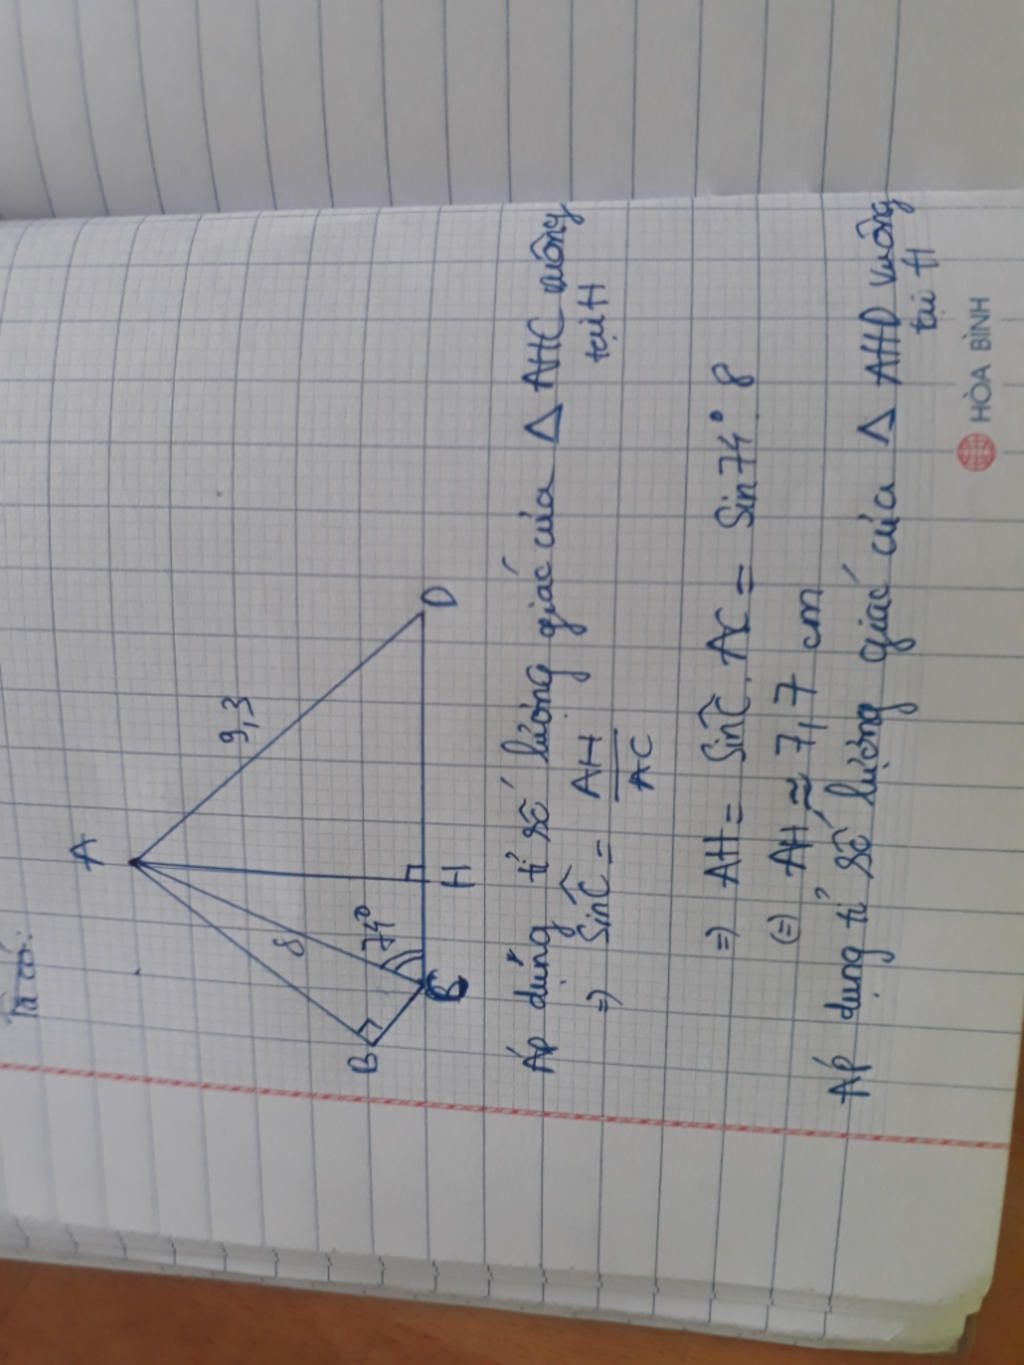 Ta có:
A
9,3
8
74°
B
C
H
D
Áp dụng tỉ số lượng giác của Δ AHC vuông
tại H
=) Sin Ĉ = AH
AC
=) AH = Sin Ĉ . AC = Sin 74° . 8
(=) AH ≈ 7,7 cm
Áp dụng tỉ số lượng giác của Δ AHD vuông
tại H
HÒA BÌNH